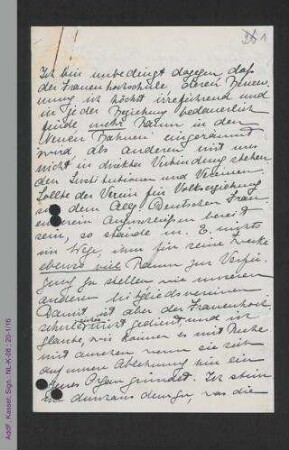 1
Ich bin unbedingt dagegen, daß
der Frauenhochschule deren Benen-
nung ist höchst irreführend und
in jeder Beziehung bedauerlich
finde mehr Raum in den
Neuen Bahnen eingeräumt
wird als anderen mit uns
nicht in direkter Verbindung stehen
den Institutionen und Vereinen.
Sollte der Verein für Volkserziehung
dem Allg Deutschen Frau
enverein anzuschließen bereit
sein, so stände m. E. nichts
im Wege, ihm für seine Zwecke
ebenso viel Raum zur Verfü-
gung zu stellen wie unseren
anderen Mitgliedsvereinen
Damit ist aber der Frauenhoch
schule nicht gedient und ich
glaube, wir können es mit Ruhe
mit ansehen wenn sie sich
auf unsre Ablehnung hin ein
eignes Organ gründet. Ich stim
me durchaus dem zu, was die
AddF, Kassel, Sign.: NL-K-08 ; 20-1/16